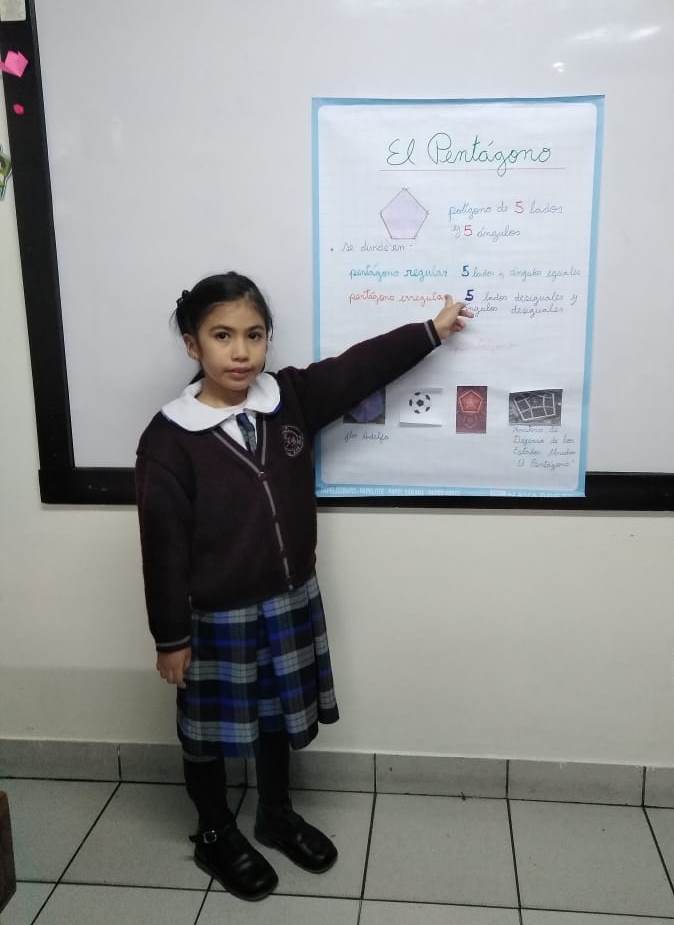 El Pentágono
polígono de 5 lados
y 5 ángulos
. se divide en -
pentágono regular 5 lados y ángulos iguales
pentágono irregular 5 lados desiguales y
ángulos desiguales
flor
Defensa de los
Estados Unidos
"El Pentágono"